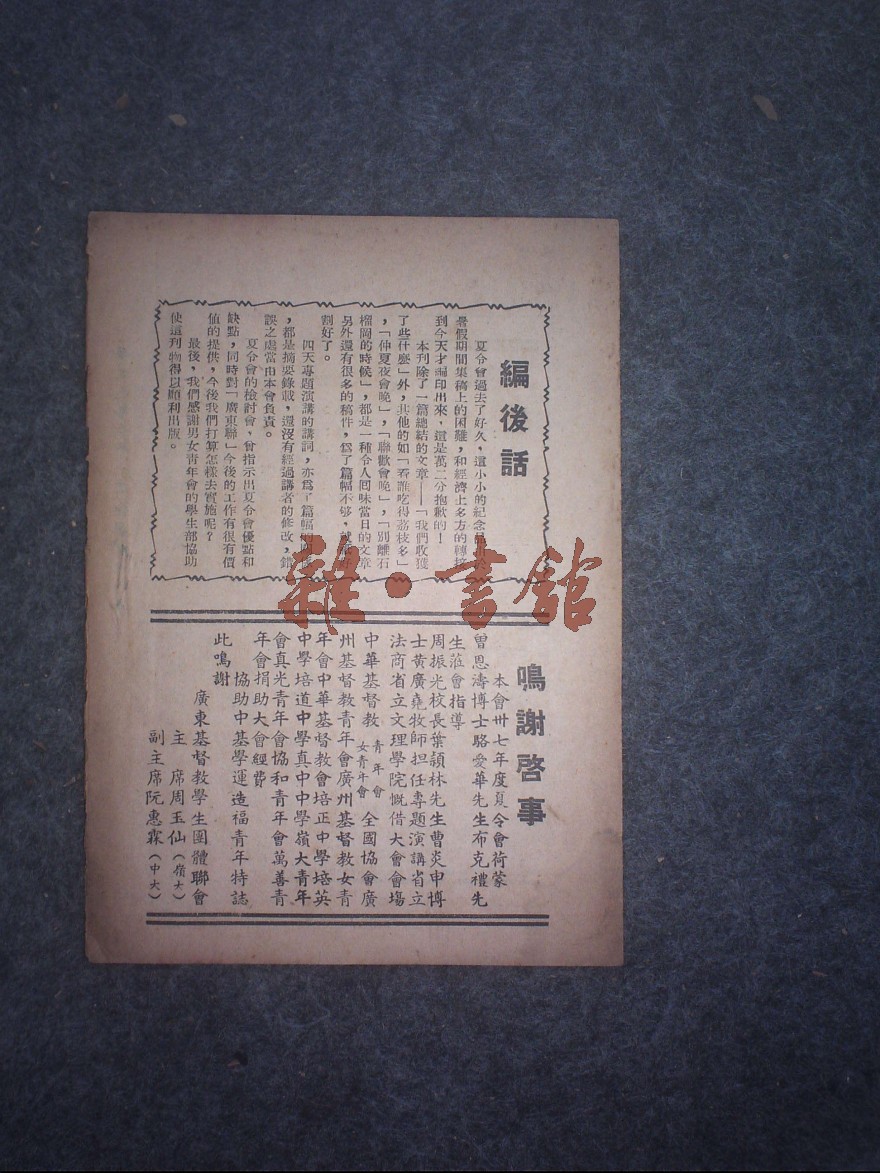 編後話
夏令會過去了好久，這小小的紀念
暑假期間集稿上的困難，和經濟上多方的轉
到今天才編印出來，這是萬二分抱歉的！
本刊除了一篇總結的文章——「我們收獲
了些什麼」外，其他的如「看誰吃得荔枝多」
，「仲夏夜會晚」，「聯歡會晚」，「別離石
榴崗的時候」，都是一種令人囘味當日的文章
另外還有很多的稿件，爲了篇幅不够，
割好了。
四天專題演講的講詞，亦爲了篇幅
，都是摘要錄載，還沒有經過講者的修改，錯
誤之處當由本會負責。
夏令會的檢討會，曾指示出夏令會優點和
缺點，同時對「廣東聯」今後的工作有很有價
值的提供，今後我們打算怎樣去實施呢？
最後，我們感謝男女青年會的學生部協助
使這刊物得以順利出版。
鳴謝啓事
本會卅七年度夏令會荷蒙
曾恩濤博士駱愛華先生布克禮先
生蒞會指導
周振光校長葉頴林先生曹炎申博
士黃廣堯牧師担任專題演講省立
法商省立文理學院慨借大會會塲
中華基督教青年會女青年會全國協會廣
州基督教青年會廣州基督教女青
年會中華基督教會培正中學培英
中學培道中學真中中學嶺大青年
會真光青年會協和青年會萬善青
年會捐助大會經費
協助中基學運造福青年特誌
此鳴謝
廣東基督教學生團體聯會
主席周玉仙（嶺大）
副主席阮惠霖（中大）
雜·書館